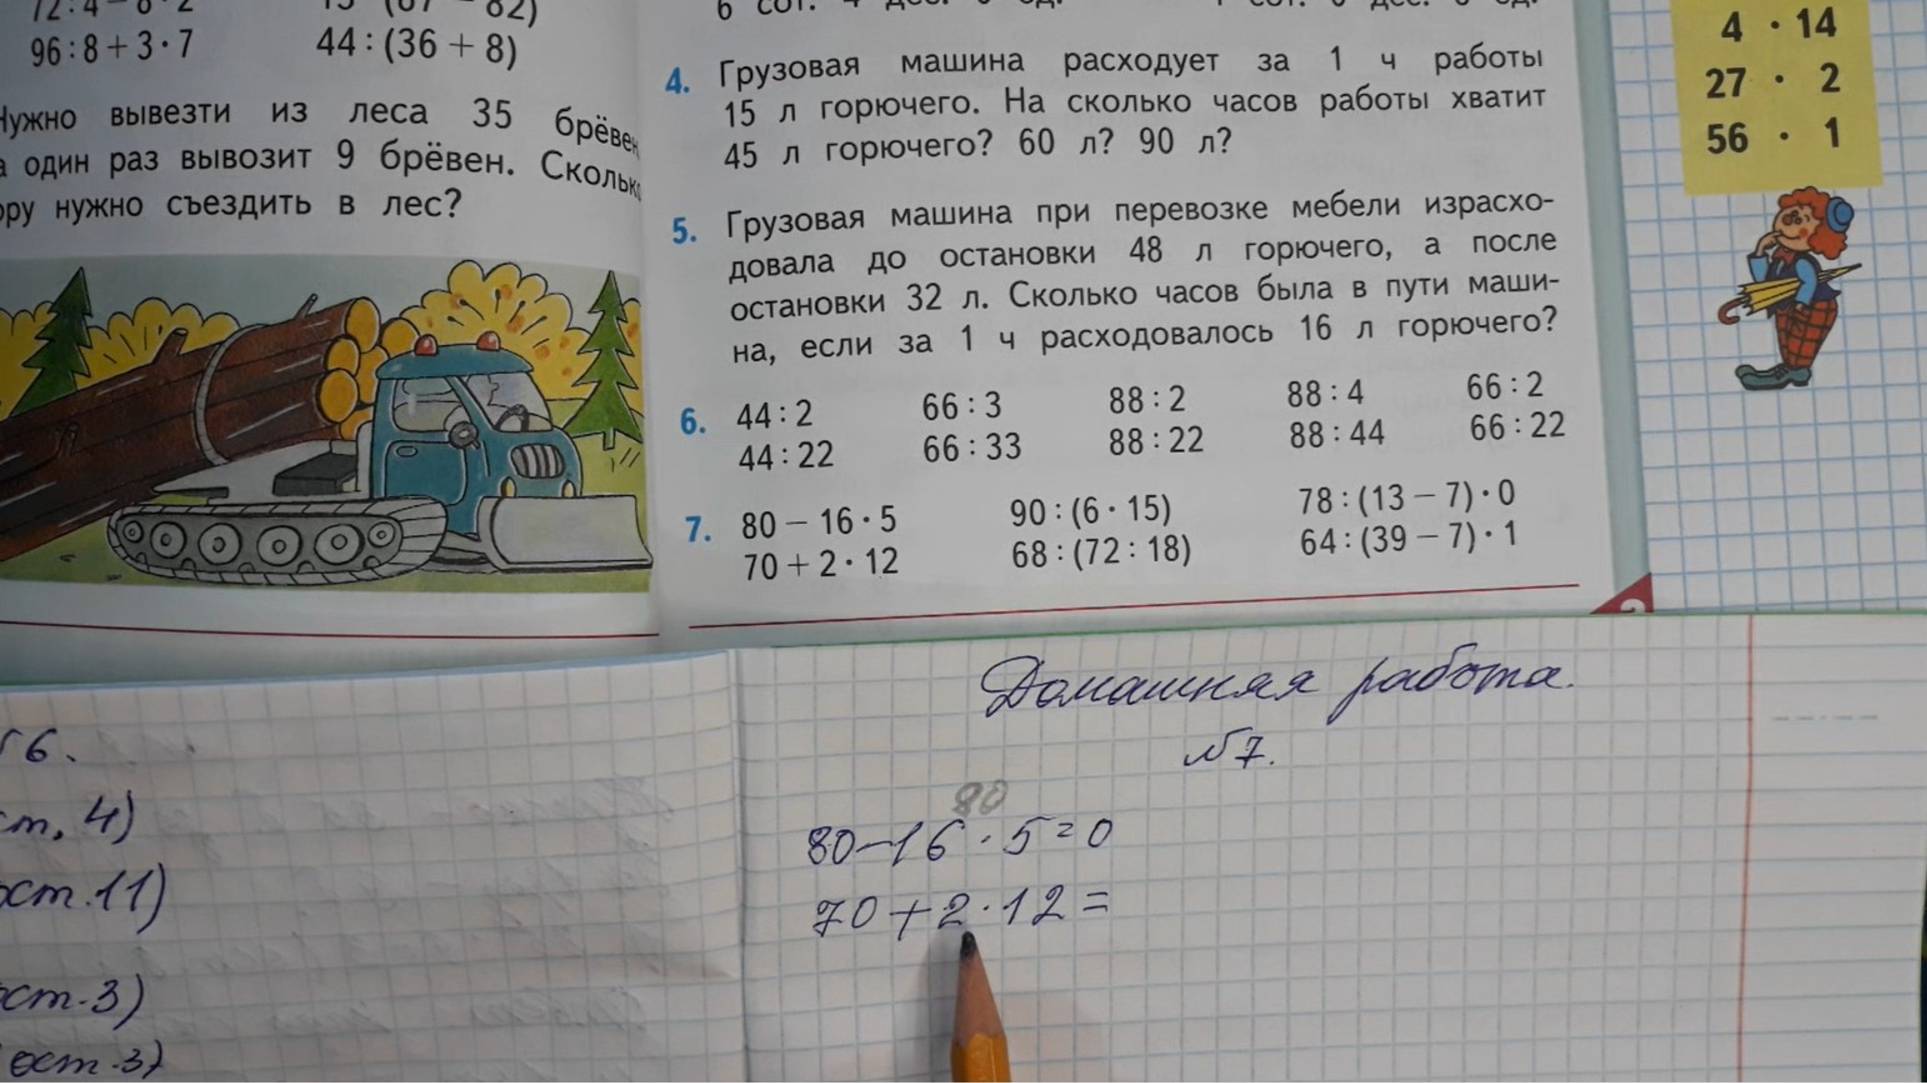 96 : 8 + 3 · 7
44 : (36 + 8)
Нужно вывезти из леса 35 брёвен
один раз вывозит 9 брёвен. Сколько
нужно съездить в лес?
4. Грузовая машина расходует за 1 ч работы
15 л горючего. На сколько часов работы хватит
45 л горючего? 60 л? 90 л?
5. Грузовая машина при перевозке мебели израсхо-
довала до остановки 48 л горючего, а после
остановки 32 л. Сколько часов была в пути маши-
на, если за 1 ч расходовалось 16 л горючего?
6. 44 : 2 66 : 3 88 : 2 88 : 4 66 : 2
44 : 22 66 : 33 88 : 22 88 : 44 66 : 22
7. 80 – 16 · 5 90 : (6 · 15) 78 : (13 – 7) · 0
70 + 2 · 12 68 : (72 : 18) 64 : (39 – 7) · 1
4 · 14
27 · 2
56 · 1
6.
4)
ост. 11)
ост. 3)
ост. 3)
Домашняя работа.
№7.
80
80 – 16 · 5 = 0
70 + 2 · 12 =